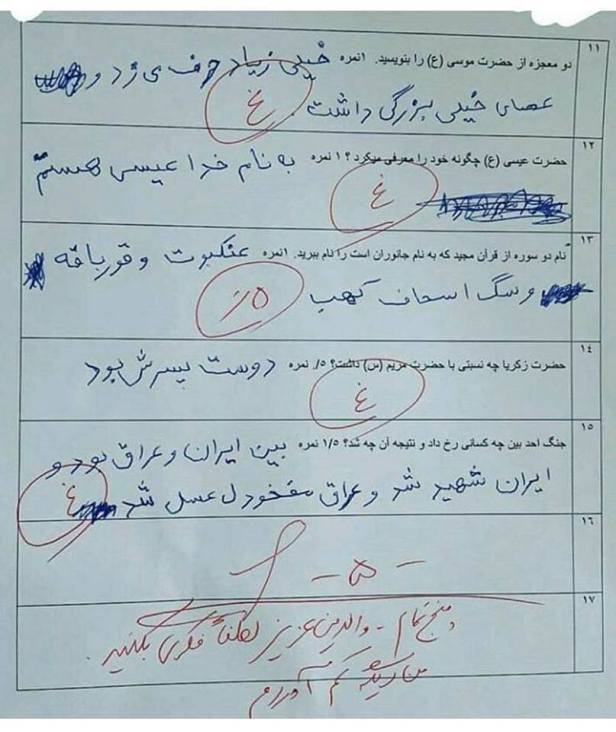 ۱۱
دو معجزه از حضرت موسی (ع) را بنویسید. ۱نمره خیلی زیاد حرف می زد و
عصای خیلی بزرگی داشت.
غ
۱۲
حضرت عیسی (ع) چگونه خود را معرفی میکرد؟ ۱ نمره به نام خدا عیسی هستم
غ
۱۳
نام دو سوره از قرآن مجید که به نام جانوران است را نام ببرید. ۱نمره عنکبوت و قورباقه
و سگ اسحاف کهب
۰/۵
۱٤
حضرت زکریا چه نسبتی با حضرت مریم (س) داشت؟ ۰/۵ نمره دوست پسرش بود
غ
۱۵
جنگ احد بین چه کسانی رخ داد و نتیجه آن چه شد؟ ۱/۵ نمره بین ایران و عراق بود و
ایران شهید شد و عراق مفخودل عسل شد
غ
۱۶
- ۵ -
۱۷
پنج تمام - والدین عزیز لطفاً فکری بکنید.
من دیگه کم آوردم